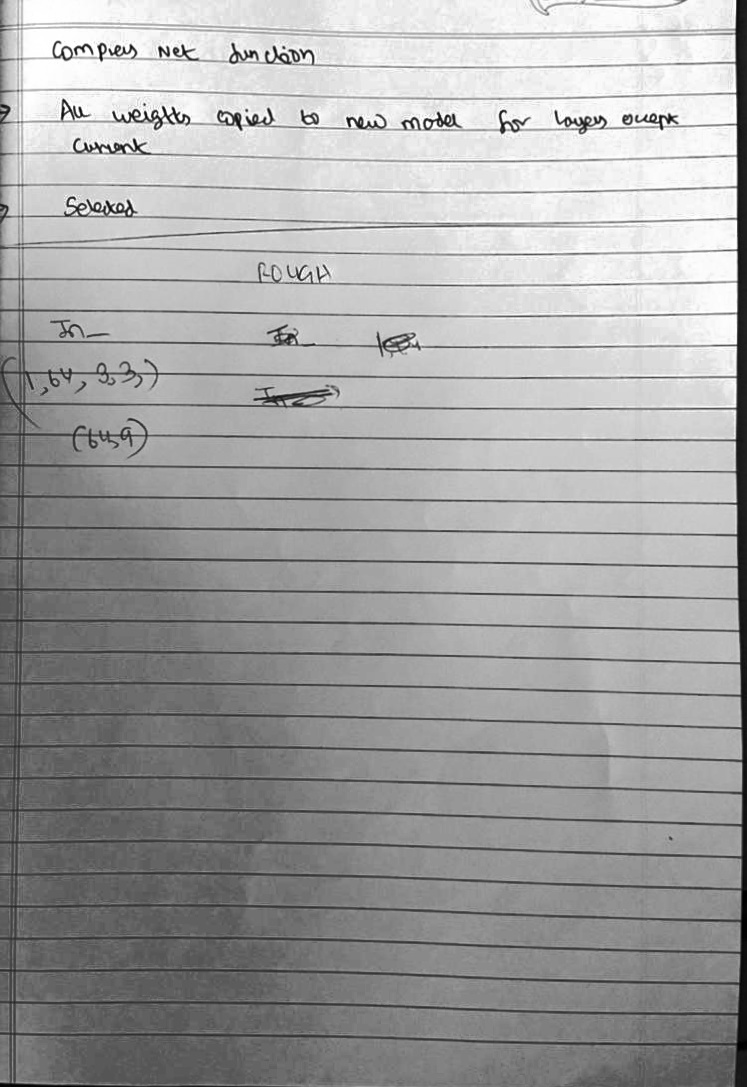 Compress Net function
→ All weights copied to new model for layers except
current
→ Selected
ROUGH
In_ In_
(1,64,3,3,)
(64,9)